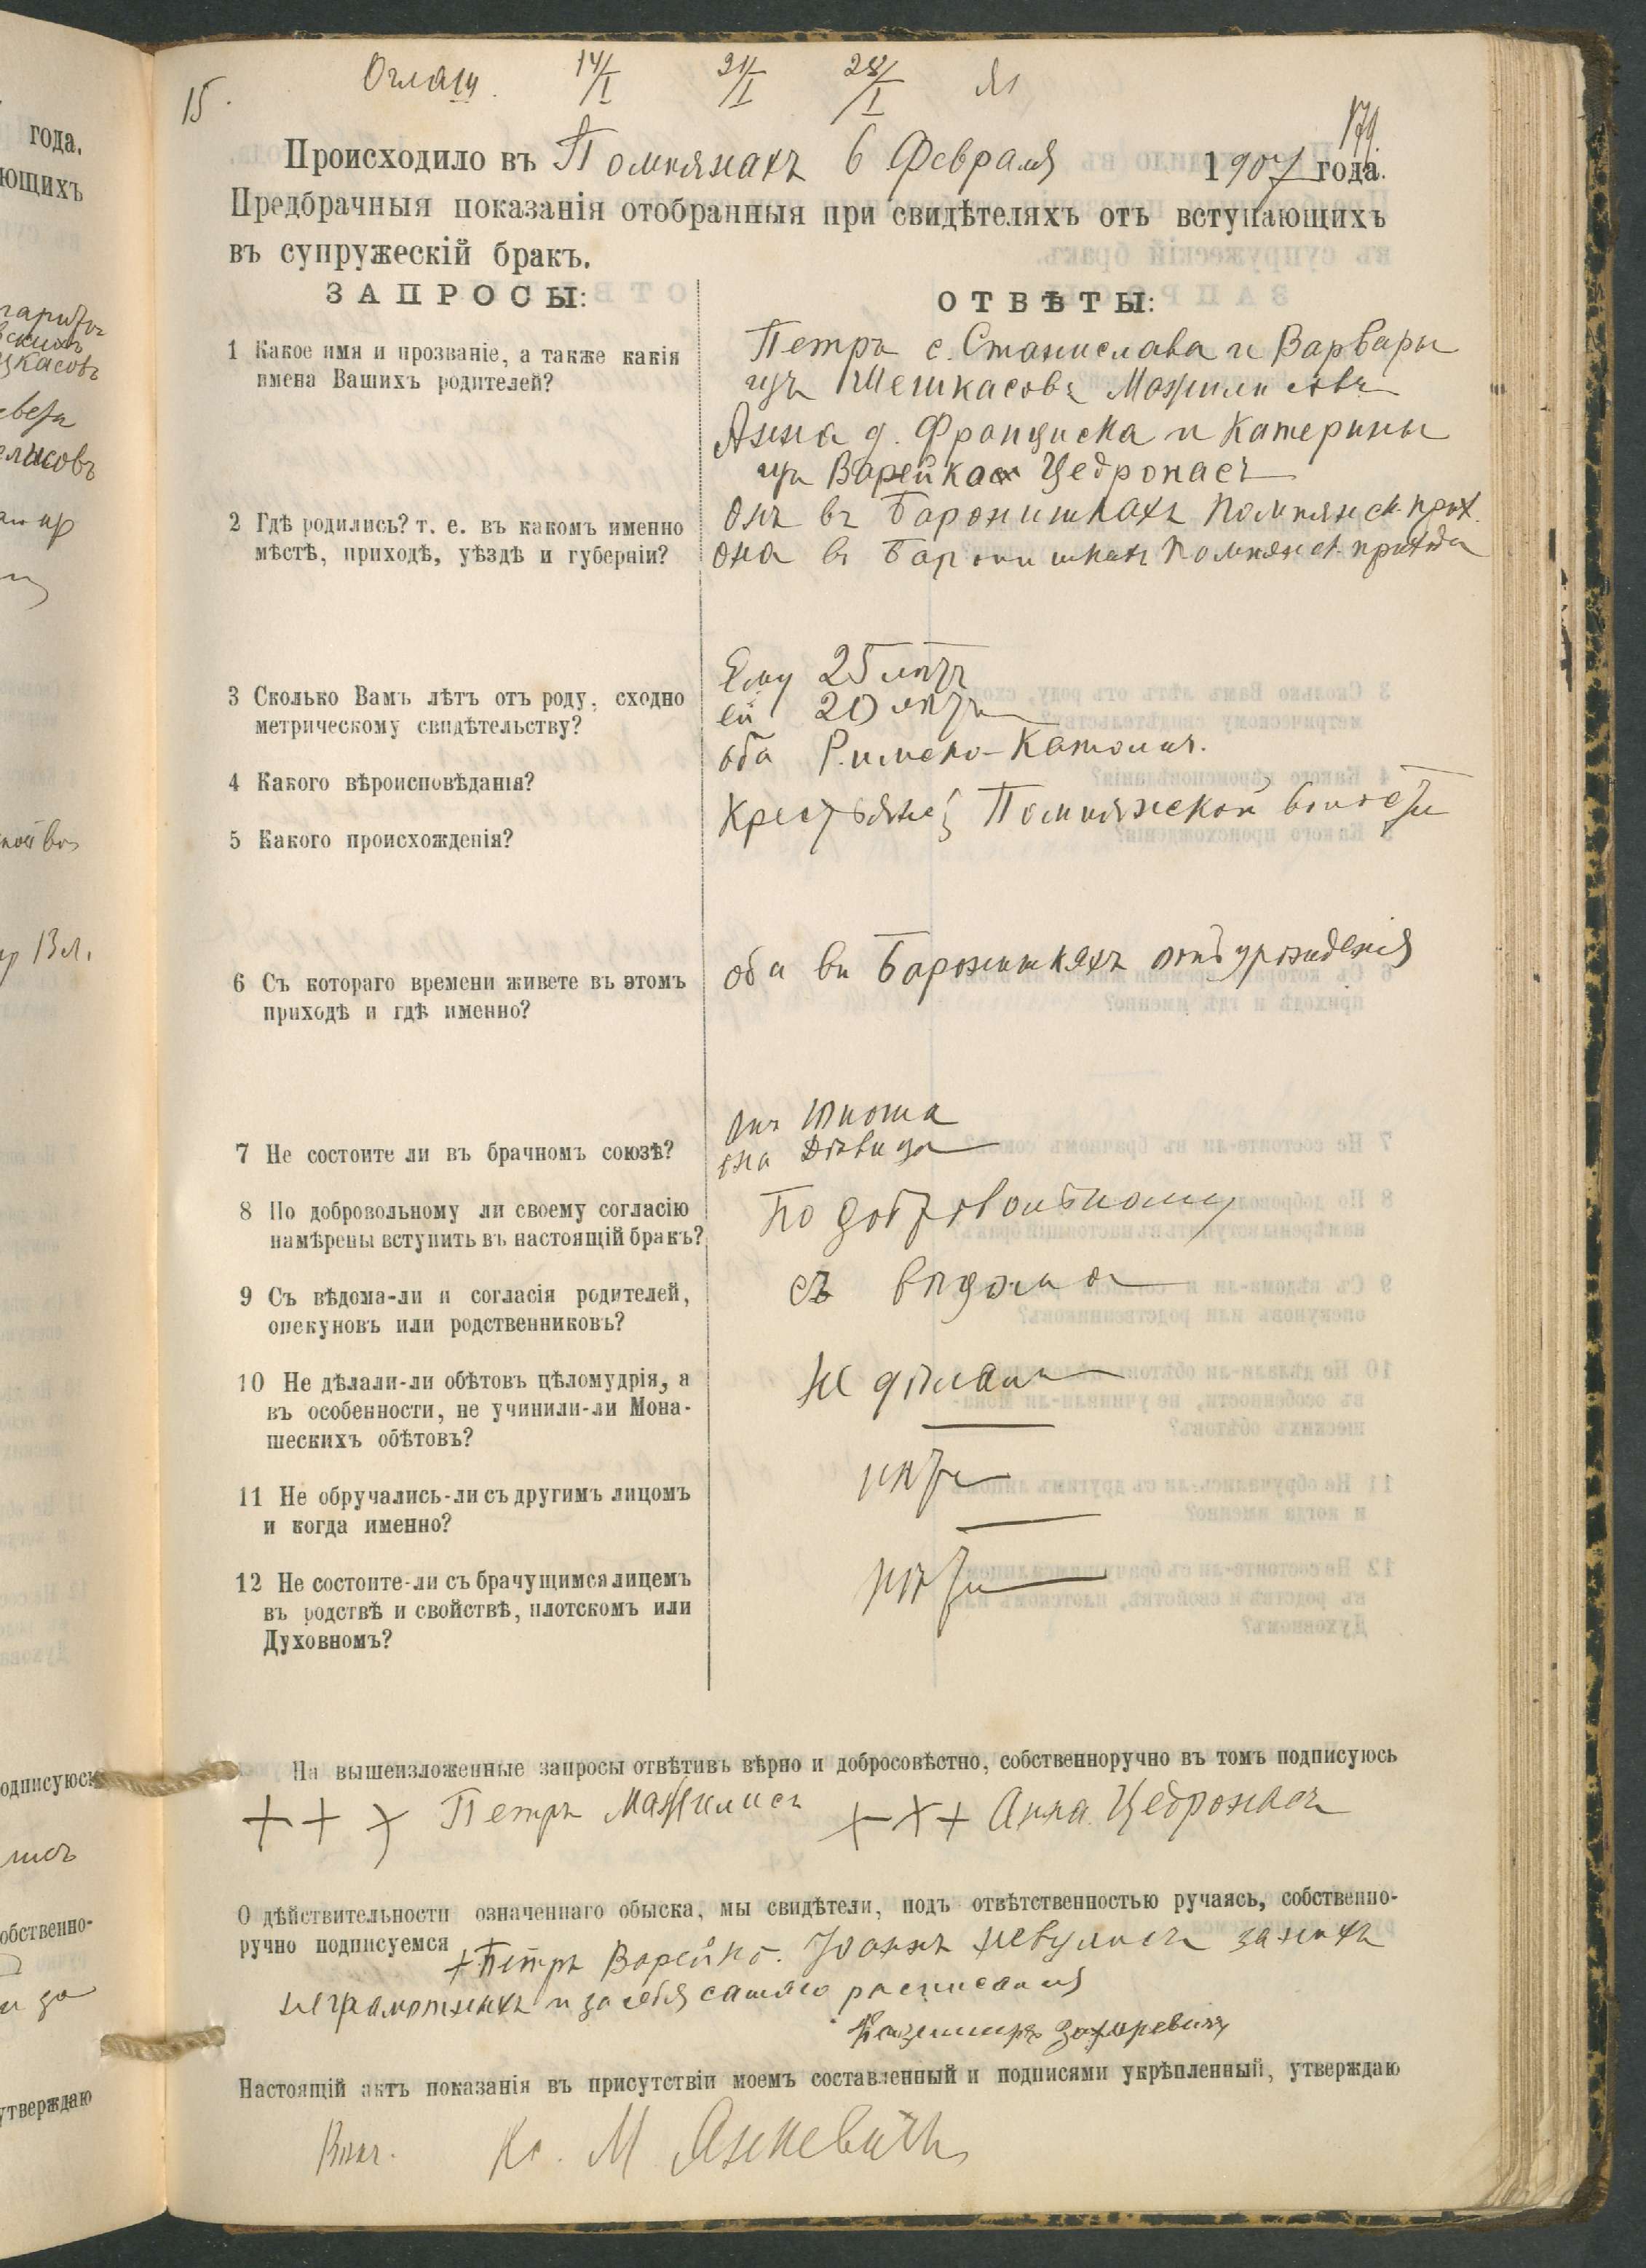 15.
Оглаш. 14/I 21/I 28/I
179.
Происходило въ Помпянахъ 6 Февраля 1907 года.
Предбрачныя показанія отобранныя при свидѣтеляхъ отъ вступающихъ
въ супружескій бракъ.
ЗАПРОСЫ:
ОТВѢТЫ:
1 Какое имя и прозваніе, а также какія
имена Вашихъ родителей?
Петръ с. Станислава и Варвары
изъ Шешкасовъ Мажилисовъ
Анна д. Франциска и Катерины
изъ Варейкасъ Цедронасъ
2 Гдѣ родились? т. е. въ какомъ именно
мѣстѣ, приходѣ, уѣздѣ и губерніи?
Онъ въ Баронишкахъ Помпянск. прих.
она въ Баронишкахъ Помпянск. прихода
3 Сколько Вамъ лѣтъ отъ роду, сходно
метрическому свидѣтельству?
Ему 25 лѣтъ
ей 20 лѣтъ
4 Какого вѣроисповѣданія?
оба Римско-Католич.
5 Какого происхожденія?
Крестьяне Помпянской волости
6 Съ котораго времени живете въ этомъ
приходѣ и гдѣ именно?
оба въ Баронишкяхъ отъ урожденія
7 Не состоите ли въ брачномъ союзѣ?
онъ Юноша
она Дѣвица
8 По добровольному ли своему согласію
намѣрены вступить въ настоящій бракъ?
По добровольному
9 Съ вѣдома-ли и согласія родителей,
опекуновъ или родственниковъ?
съ вѣдома
10 Не дѣлали-ли обѣтовъ цѣломудрія, а
въ особенности, не учинили-ли Мона-
шескихъ обѣтовъ?
не дѣлали
11 Не обручались-ли съ другимъ лицомъ
и когда именно?
нѣтъ
12 Не состоите-ли съ брачущимся лицемъ
въ родствѣ и свойствѣ, плотскомъ или
Духовномъ?
нѣтъ
На вышеизложенные запросы отвѣтивъ вѣрно и добросовѣстно, собственноручно въ томъ подписуюсь
+ + + Петръ Мажилисъ + + + Анна Цедронасъ
О дѣйствительности означеннаго обыска, мы свидѣтели, подъ отвѣтственностью ручаясь, собственно-
ручно подписуемся
+ Петръ Варейко. Іоаннъ за нихъ
неграмотныхъ и за себя самаго расписался
Казимиръ
Настоящій актъ показанія въ присутствіи моемъ составленный и подписями укрѣпленный, утверждаю
Викар. Кс. М. Янкевичъ